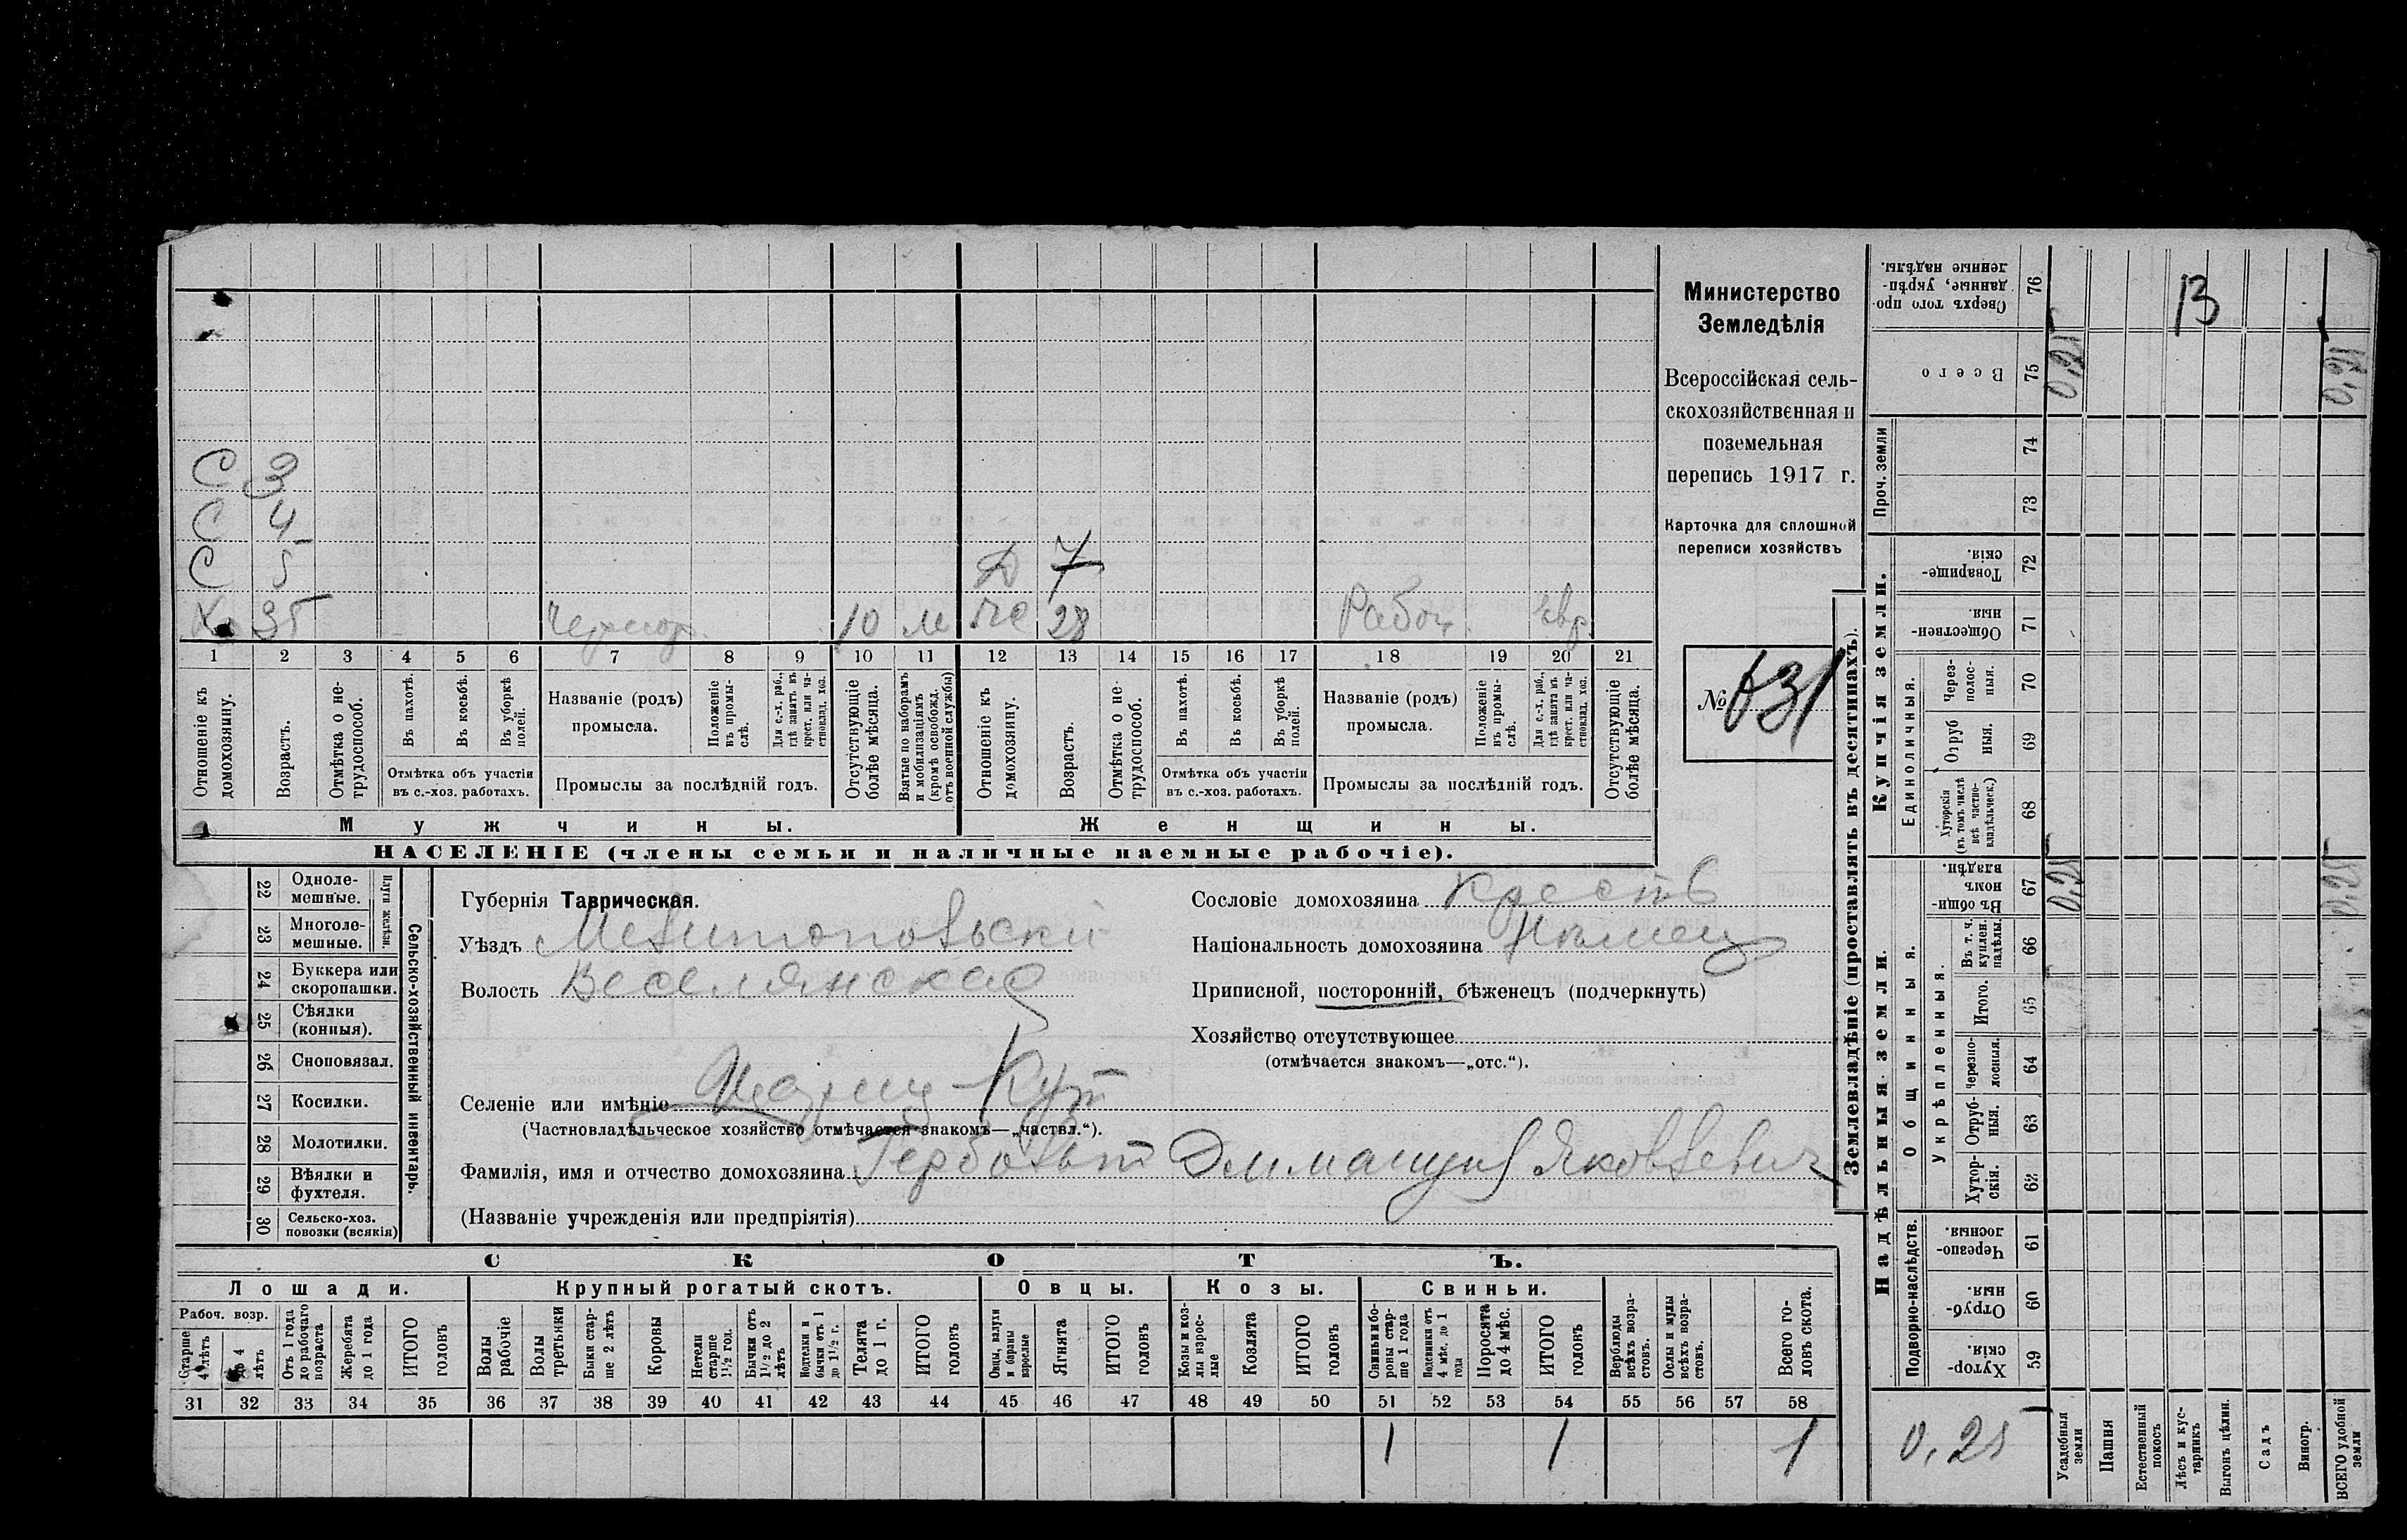 С 3
С 4
С 5 Д 7
Х 35 Чернор. 10 м же 28 Рабоч.
1 2 3 4 5 6 7 8 9 10 11 12 13 14 15 16 17 18 19 20 21
Отношеніе къ домохозяину.
Возрастъ.
Отмѣтка о не-трудоспособ.
Въ пахотѣ.
Въ косьбѣ.
Въ уборкѣ полей.
Отмѣтка объ участіи въ с.-хоз. работахъ.
Названіе (родъ) промысла.
Положеніе въ промы-слѣ.
Для с.-х. раб., гдѣ занятъ въ крест. или ча-стновлад. хоз.
Промыслы за послѣдній годъ.
Отсутствующіе болѣе мѣсяца.
Взятые по наборамъ и мобилизаціямъ (кромѣ освобожд. отъ военной службы)
Отношеніе къ домохозяину.
Возрастъ.
Отмѣтка о не-трудоспособ.
Въ пахотѣ.
Въ косьбѣ.
Въ уборкѣ полей.
Отмѣтка объ участіи въ с.-хоз. работахъ.
Названіе (родъ) промысла.
Положеніе въ промы-слѣ.
Для с.-х. раб., гдѣ занята въ крест. или ча-стновлад. хоз.
Промыслы за послѣдній годъ.
Отсутствующіе болѣе мѣсяца.
Мужчины. Женщины.
НАСЕЛЕНІЕ (члены семьи и наличные наемные рабочіе).
Министерство
Земледѣлія
Всероссійская сель-
скохозяйственная и
поземельная
перепись 1917 г.
Карточка для сплошной
переписи хозяйствъ
№ 631
22 Одноле-мешные.
23 Многоле-мешные.
24 Буккера или скоропашки.
25 Сѣялки (конныя).
26 Сноповязал.
27 Косилки.
28 Молотилки.
29 Вѣялки и фухтеля.
30 Сельско-хоз. повозки (всякія)
Сельско-хозяйственный инвентарь.
Губернія Таврическая.
Уѣздъ Мелитопольскій
Волость Веселянская
Селеніе или имѣніе Кут
(Частновладѣльческое хозяйство отмѣчается знакомъ—„частвл.“).
Фамилія, имя и отчество домохозяина Эммануил Яковлевич
(Названіе учрежденія или предпріятія)
Сословіе домохозяина Крест
Національность домохозяина Нѣмец
Приписной, посторонній, бѣженецъ (подчеркнуть)
Хозяйство отсутствующее
(отмѣчается знакомъ—„отс.“).
СКОТЪ.
Лошади. Крупный рогатый скотъ. Овцы. Козы. Свиньи.
Рабоч. возр.
Старше 4 лѣтъ
До 4 лѣтъ
Отъ 1 года до рабочаго возраста
Жеребята до 1 года
ИТОГО головъ
Волы рабочіе
Волы третьяки
Быки стар-ше 2 лѣтъ
Коровы
Нетели старше 1½ год.
Бычки отъ 1½ до 2 лѣтъ
Подтелки и бычки отъ 1 до 1½ г.
Телята до 1 г.
ИТОГО головъ
Овцы, валухи и бараны взрослые
Ягнята
ИТОГО головъ
Козы и коз-лы взрос-лые
Козлята
ИТОГО головъ
Свиньи и бо-ровы стар-ше 1 года
Подсвинки отъ 4 мѣс. до 1 года
Поросята до 4 мѣс.
ИТОГО головъ
Верблюды всѣхъ возра-стовъ.
Ослы и мулы всѣхъ возра-стовъ.
Всего го-ловъ скота.
31 32 33 34 35 36 37 38 39 40 41 42 43 44 45 46 47 48 49 50 51 52 53 54 55 56 57 58
1 1 1
Землевладѣніе (проставлять въ десятинахъ).
Надѣльныя земли. Купчія земли. Проч. земли
Подворно-наслѣдств. Общинныя. Укрѣпленныя. Единоличныя.
Сверхъ того про-данные, укрѣп-ленные надѣлы. 76 13
Всего 75 0,25 0,25
74
73
Товарище-скія. 72
Обществен-ныя 71
Через-полос-ныя. 70
Отруб ныя. 69
Хуторскія (въ томъ числѣ всѣ частно-владѣльческ.) 68
Въ общи-номъ владѣн. 67 0,25 0,25
Въ т. ч. куплен. надѣлы. 66
Итого. 65
Черезпо-лосныя. 64
Отруб-ныя. 63
Хутор-скія. 62
Черезпо-лосныя 61
Отруб-ныя. 60
Хутор-скія. 59
0,25
Усадебныя земли
Пашня
Естественный покосъ
Лѣсъ и кус-тарникъ
Выгонъ цѣлин.
Садъ
Виногр.
ВСЕГО удобной земли